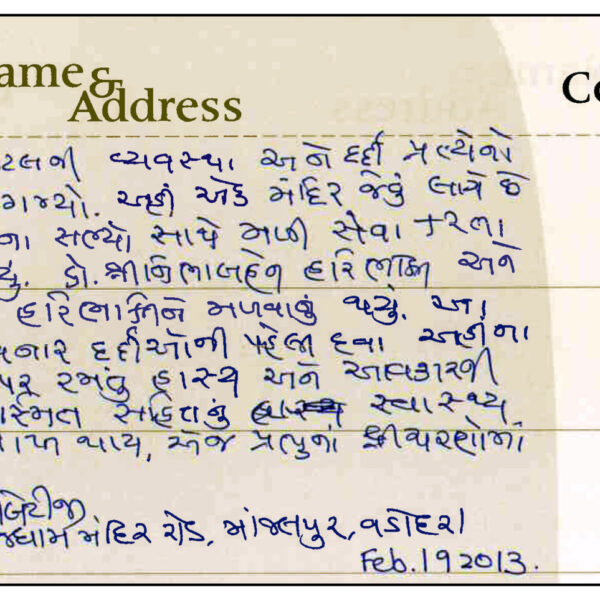 ame &
Address
Co
ટલની વ્યવસ્થા અને દર્દી પ્રત્યેનો
ગમ્યો. અહીં એક મંદિર જેવું લાગે છે
ના સભ્યો સાથે મળી સેવા કરતા
યું. ડો. શ્રી હરિભક્તિ અને
હરિભક્તિને મળવાનું થયું. આ
નાર દર્દીઓની પહેલી દવા અહીંના
પર રમતું હાસ્ય અને આવકારની
સ્મિત સહિતનું સ્વાસ્થ્ય
થાય, એજ પ્રભુનાં શ્રીચરણોમાં
બેટીજી
જધામ મંદિર રોડ, માંજલપુર, વડોદરા
Feb. 19 2013.